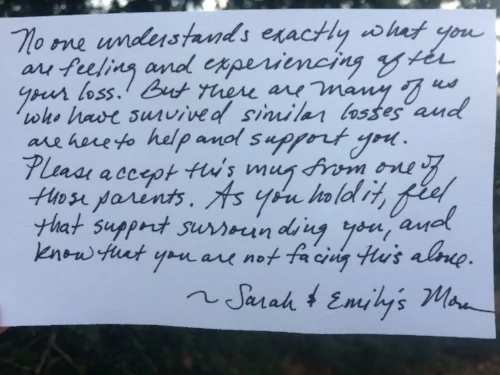 No one understands exactly what you
are feeling and experiencing after
your loss. But there are many of us
who have survived similar losses and
are here to help and support you.
Please accept this mug from one of
those parents. As you hold it, feel
that support surrounding you, and
know that you are not facing this alone.
~ Sarah & Emily's Mom